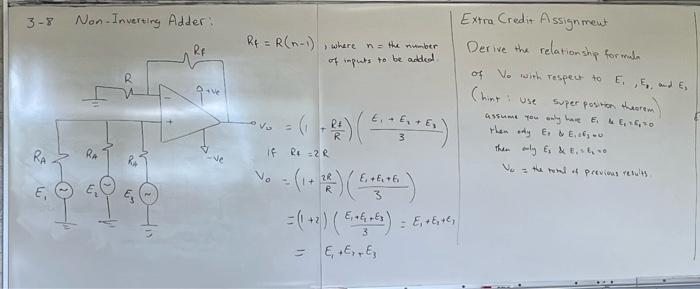 3-8 Non-Inverting Adder:
Rf = R(n-1) , where n = the number
of inputs to be added.
Rf
R
+ve
-
+
-ve
RA
RA
RA
E1
E2
E3
Vo = (1 + Rf/R) ( E1 + E2 + E3 / 3 )
If Rf = 2R
Vo = (1 + 2R/R) ( E1 + E2 + E3 / 3 )
= (1+2) ( E1 + E2 + E3 / 3 ) = E1 + E2 + E3
= E1 + E2 + E3
Extra Credit Assignment
Derive the relationship formula
of Vo with respect to E1 , E2, and E3
(hint: use super position theorem)
assume you only have E1 & E2=E3=0
then only E2 & E1=E3=0
then only E3 & E1=E2=0
Vo = the total of previous results.